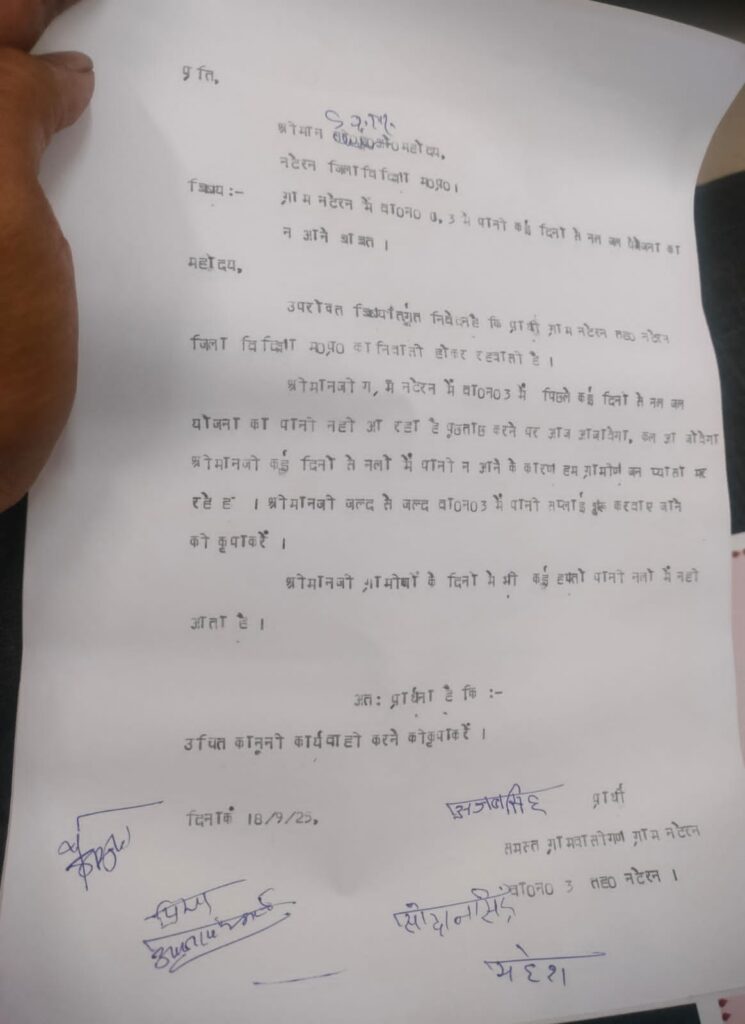 प्रति,
S.D.M.
श्रीमान महोदय,
नटेरन जिला विदिशा म0प्र0।
विषय :- ग्राम नटेरन में वा0न0 3 मे पानी कई दिनों से नल जल योजना का
न आने बाबत ।
महोदय,
उपरोक्त विषयांतर्गत निवेदन है कि प्रार्थी ग्राम नटेरन तह0 नटेरन
जिला विदिशा म0प्र0 का निवासी होकर रहवासी है ।
श्रीमानजी ग्राम नटेरन में वा0न03 में पिछले कई दिनों से नल जल
योजना का पानी नही आ रहा है पुछताछ करने पर आज आजावेगा, कल आ जावेगा
श्रीमानजी कई दिनों से नलों में पानी न आने के कारण हम ग्रामीण जन प्यासे मर
रहे है । श्रीमानजी जल्द से जल्द वा0न03 में पानी सप्लाई शुरू करवाए जाने
की कृपा करें ।
श्रीमानजी के दिनो मे भी कई हफ्तो पानी नलो में नही
आता है ।
अत: प्रार्थना है कि :-
उचित कानूनी कार्यवाही करने की कृपा करें ।
दिनाकं 18/9/25,
अजबसिंह प्रार्थी
समस्त ग्रामवासीगण ग्राम नटेरन
वा0न0 3 तह0 नटेरन ।
प्रिया
सोदानसिंह
महेश